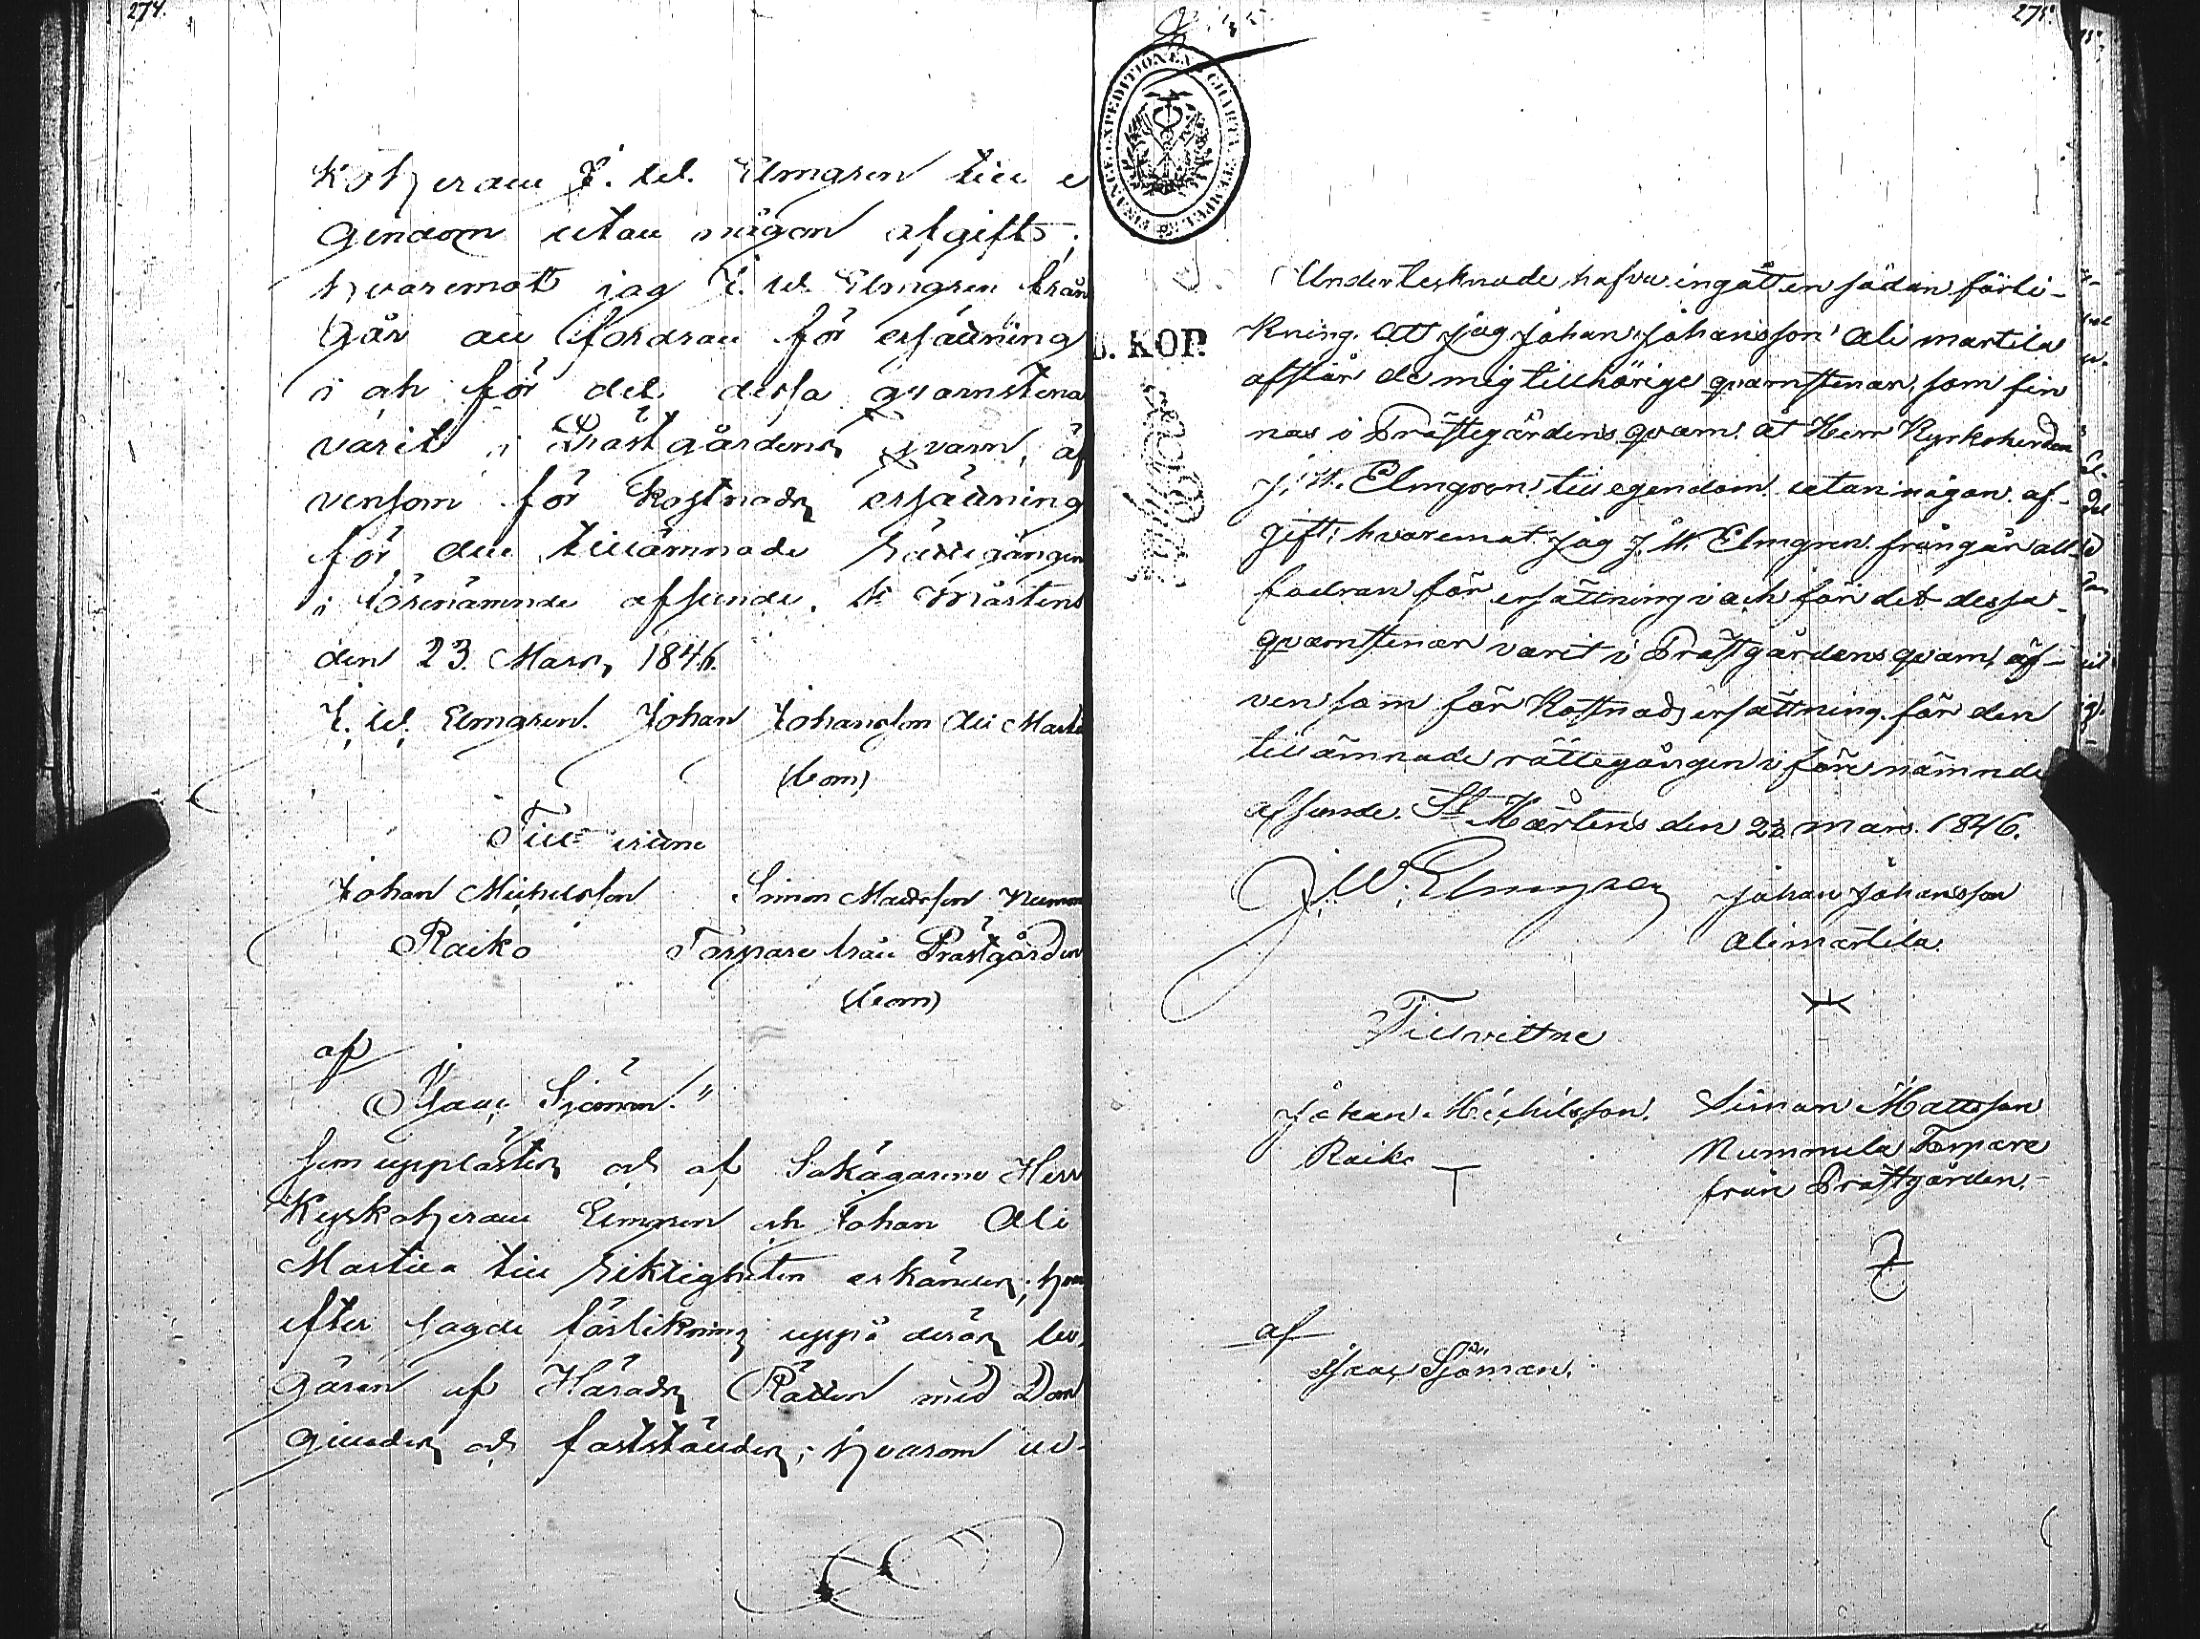 274.
Koherden J. W. Elmgren till e
gendom utan någon afgift;
hvaremot jag J. W. Elmgren från
går all fordran för ersättning
i och för det dessa qvarnstena
varit i Prästgårdens qvarn, äf
vensom för kostnads ersättning
för den tillämnade Rättegången
i förenämnde afseende. St Mårtens
den 23. Mars, 1846.
J. W. Elmgren. Johan Johansson Ali Marti
(bom)
Till vittne
Johan Michelsson Simon Mattsson Numm
Raiko Torpare från Prästgården
(bom)
af
Isaac Sjöman."
som upplästes och af Sakägarene Herr
Kyrkoherden Elmgren och Johan Ali
Martila till riktigheten erkändes; hvar
efter sagde förlikning uppå deras be
gäran af Härads Rätten med Dom
gillades och fastställdes; hvarom ut-
275.
FINANCE EXPEDITIONEN CHARTA STEMPEL
S. KOP.
Undertecknade hafva ingått en sådan förli-
kning. Att jag Johan Johansson Ali martila
afstår de mig tillhörige qvarnstenar, som fin
nas i Prästegårdens qvarn. åt Herr Kyrkoherden
J. W. Elmgren till egendom utan någon af-
gift; hvaremot Jag J. W. Elmgren frångår all
fodran för ersättning i och för det dessa
qvarnstenar varit i Prästgårdens qvarn, äf-
vensom för Kostnads ersättning för den
tillämnade rättegången i före nämnde
afseende. St Mårtens den 23 mars 1846.
J. W. Elmgren Johan Johansson
Alimartila
Till vittne
Johan Michelsson. Simon Mattsson
Raiko Nummela Torpare
från Prästgården.
af
Isaac Sjöman.